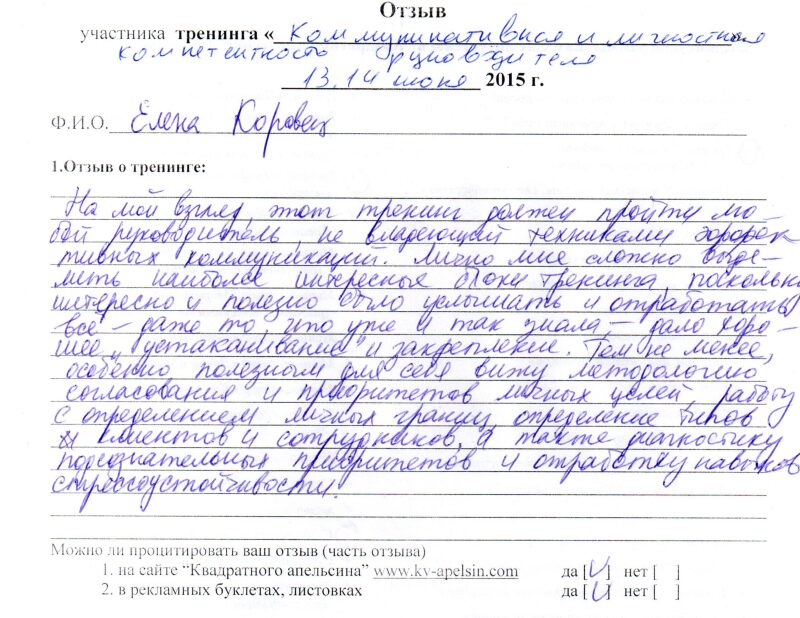 Отзыв
участника тренинга « Коммуникативная и личностная
компетентность руководителя
13, 14 июня 2015 г.
Ф.И.О. Елена Коровец
1.Отзыв о тренинге:
На мой взгляд, этот тренинг должен пройти лю-
бой руководитель, не владеющий техниками
тивных коммуникаций. Лично мне сложно выде-
лить наиболее интересные блоки тренинга, поскольку
интересно и полезно было услышать и отработать
все – даже то, что уже и так знала – дало хоро-
шее „устаканивание" и закрепление. Тем не менее,
особенно полезным для себя вижу методологию
согласования и приоритетов личных целей, работу
с определением личных границ, определение типов
клиентов и сотрудников, а также диагностику
подсознательных приоритетов и отработку навыков
стрессоустойчивости.
Можно ли процитировать ваш отзыв (часть отзыва)
1. на сайте “Квадратного апельсина” www.kv-apelsin.com да [V] нет [ ]
2. в рекламных буклетах, листовках да [V] нет [ ]